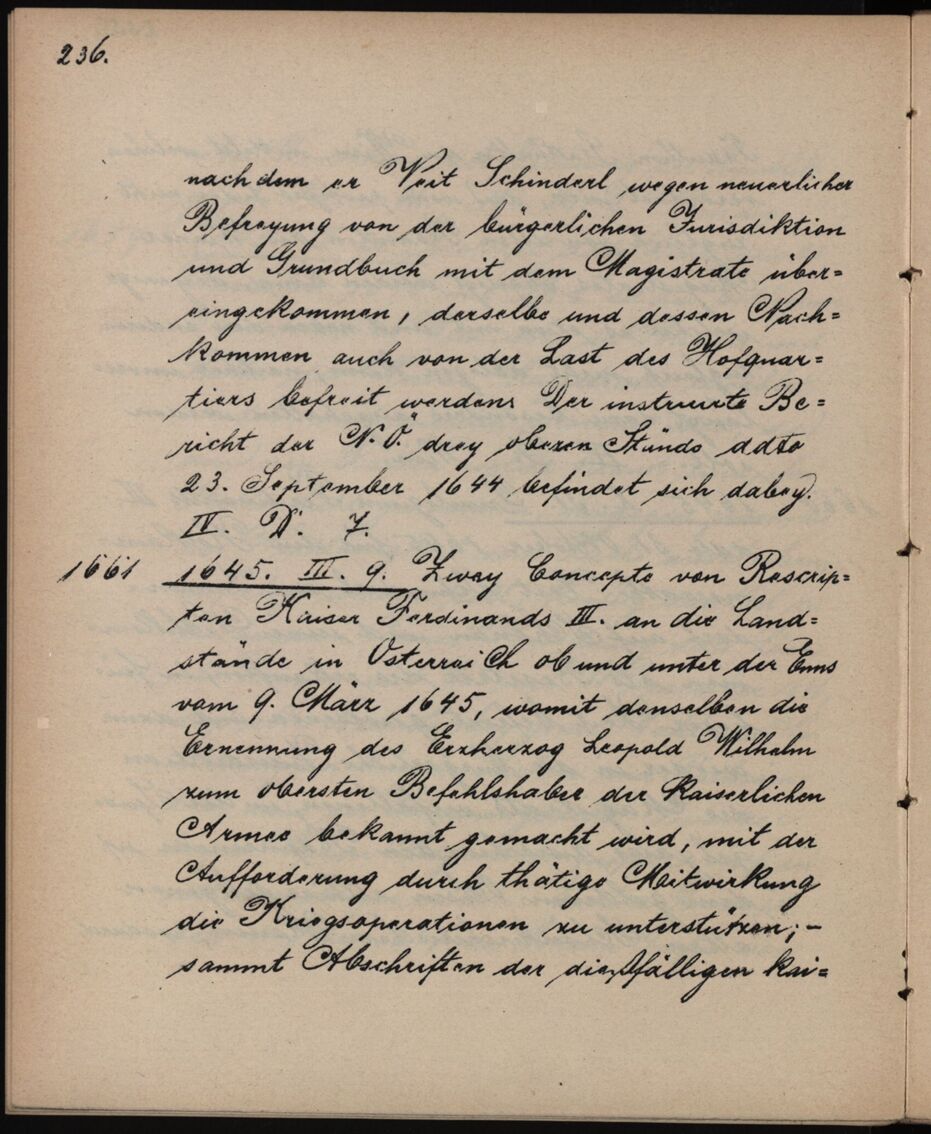 236.
nachdem er Veit Schinderl wegen neuerlicher
Befreyung von der bürgerlichen Jurisdiktion
und Grundbuch mit dem Magistrate über=
eingekommen, derselbe und dessen Nach=
kommen auch von der Last des Hofquar=
tiers befreit werden. Der instruirte Be=
richt der N.Ö. drey oberen Stände ddto
23. September 1644 befindet sich dabey.
IV. D. 7.
1661 1645. III. 9. Zwey Concepte von Rescrip=
ten Kaiser Ferdinands III. an die Land=
stände in Österreich ob und unter der Enns
vom 9. März 1645, womit denselben die
Ernennung des Erzherzog Leopold Wilhelm
zum obersten Befehlshaber der kaiserlichen
Armee bekannt gemacht wird, mit der
Aufforderung durch thätige Mitwirkung
die Kriegsoperationen zu unterstützen; –
sammt Abschriften der dießfälligen kai=